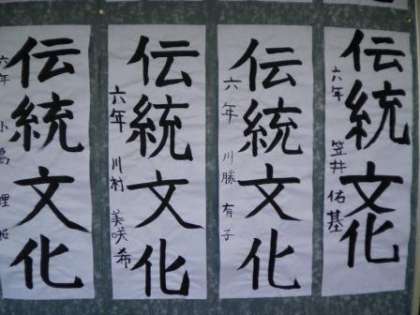 伝統文化
六年 笠井佑基
伝統文化
六年 川勝有子
伝統文化
六年 川村美咲希
伝統文化
六年 小島理